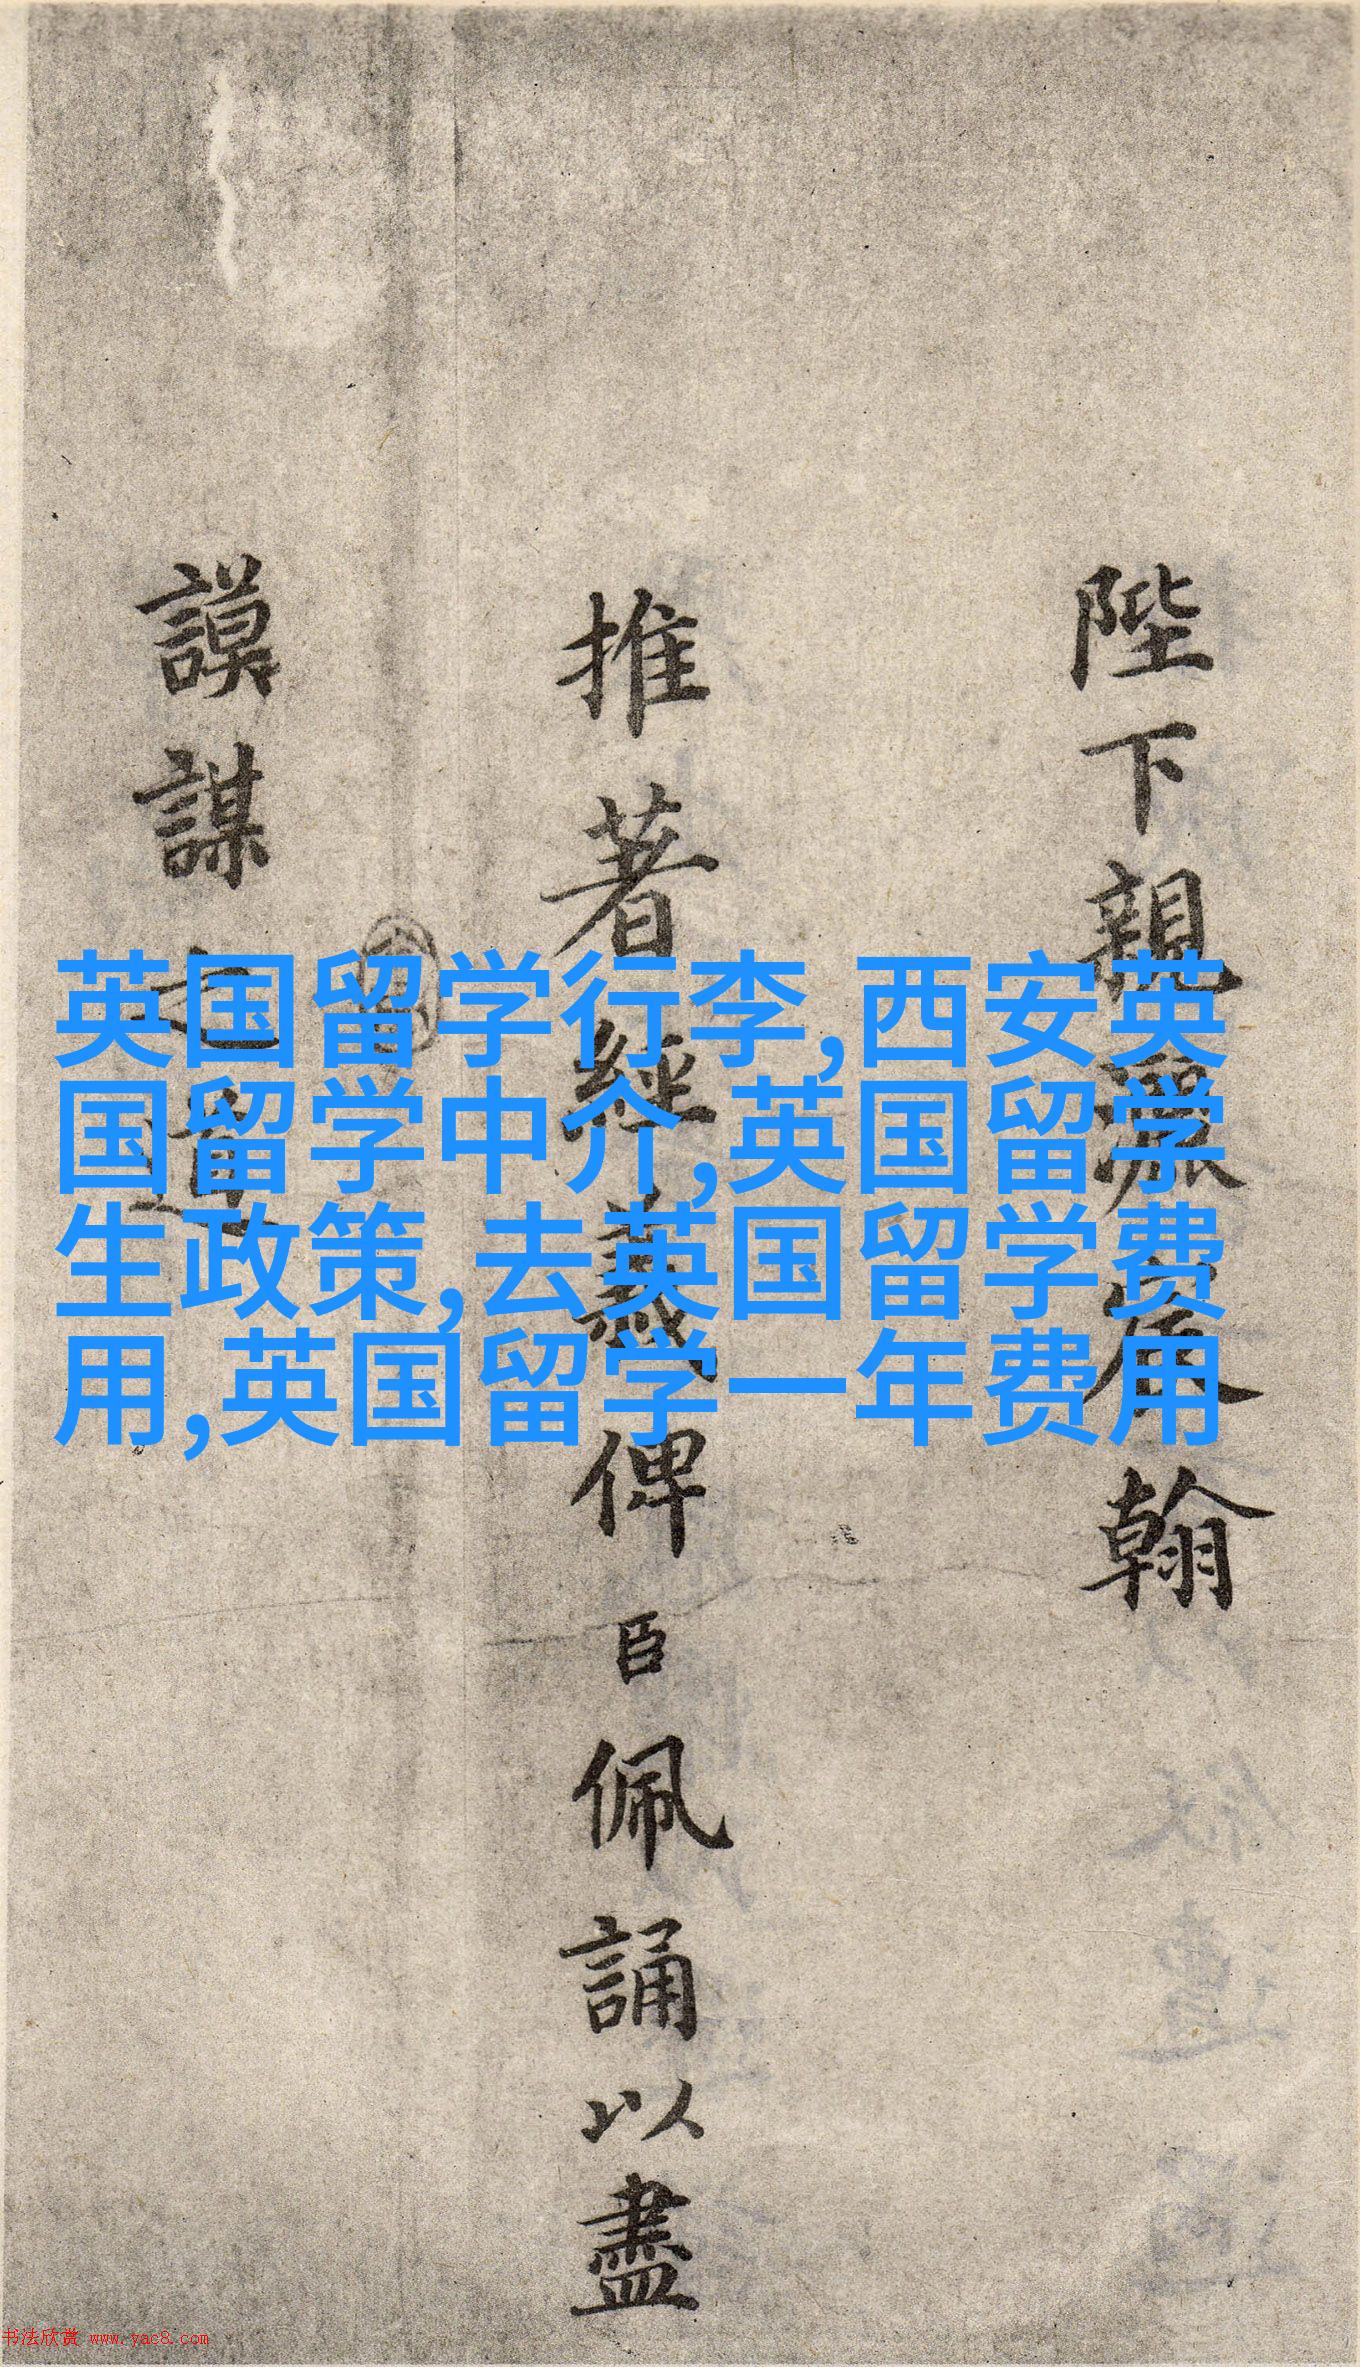 陛下親灑宸翰
推著經義俾臣佩誦以盡
謨謀之道
英国留学行李,西安英
国留学中介,英国留学
生政策,去英国留学费
用,英国留学一年费用
书法欣赏 www.yac8.com